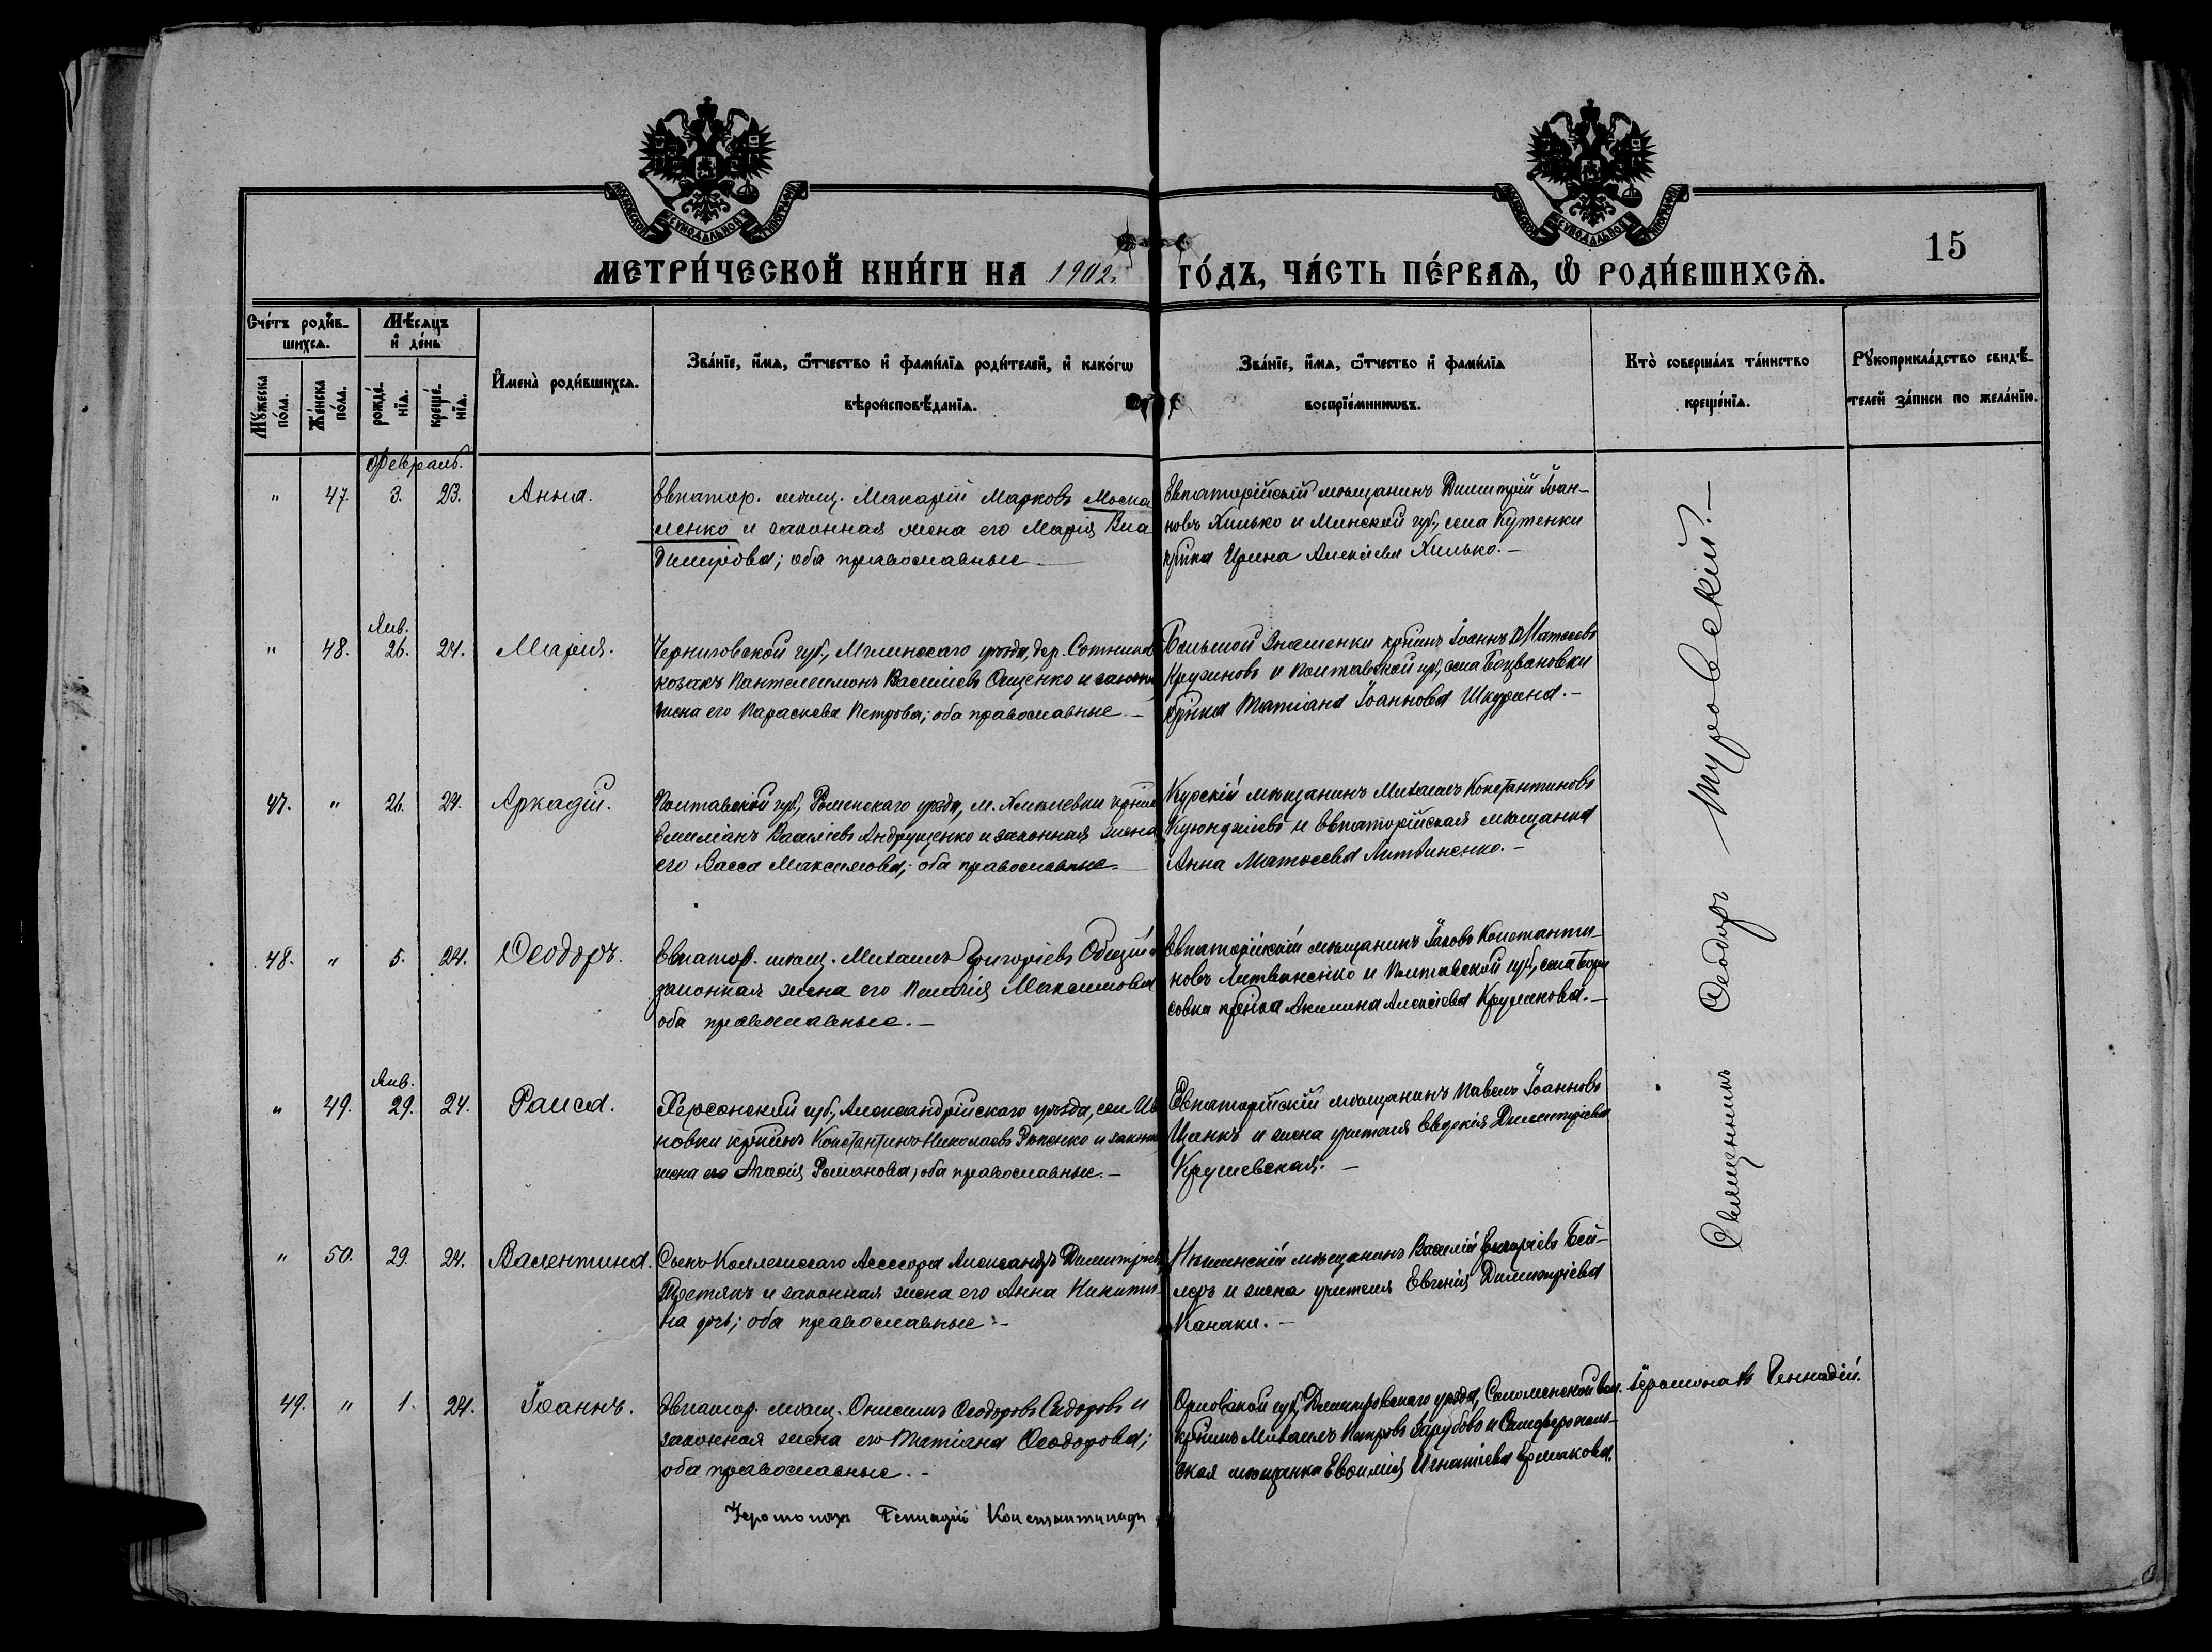 МОСКОВСКОЙ СѴНОДАЛЬНОЙ ТИПОГРАФІИ
МОСКОВСКОЙ СѴНОДАЛЬНОЙ ТИПОГРАФІИ
15
МЕТРИ́ЧЕСКОЙ КНИ́ГИ НА 1902 г. ГО́ДЪ, ЧА́СТЬ ПЕ́РВАѦ, Ѡ҆ РОДИ́ВШИХСѦ.
Сче́тъ роди́в-
шихсѧ.
Мѣ́сѧцъ
и҆ де́нь
Мꙋ́жеска
по́ла.
Же́нска
по́ла.
рожде́-
нїѧ.
креще́-
нїѧ.
И҆мена̀ роди́вшихсѧ.
Зва́нїе, и҆́мѧ, ѻ҆́тчество и҆ фами́лїѧ роди́телей, и҆ како́гѡ
вѣроисповѣ́данїѧ.
Зва́нїе, и҆́мѧ, ѻ҆́тчество и҆ фами́лїѧ
воспрїе́мникѡвъ.
Кто̀ соверша́лъ та́инство
креще́нїѧ.
Рꙋкоприкла́дство свидѣ́-
телей за́писи по жела́нїю.
Февраль.
" 47. 3. 23. Анна.
Евпатор. мѣщ. Макарій Марковъ Моска
ленко и законная жена его Марія Вла
димірова; оба православные —
Евпаторійскій мѣщанинъ Димитрій Іоан-
новъ Хилько и Минской губ., села Кутенки
кр‑нка Ирина Алексіева Хилько. —
Янв.
" 48. 26. 24. Марія.
Черниговской губ., Мглинскаго уѣзда, дер. Сотник
козакъ Пантелеимонъ Василіевъ Ощенко и законн
жена его Параскева Петрова; оба православные. —
Большой Знаменки кр‑нинъ Іоаннъ Матѳеевъ
Кругиновъ и Полтавской губ., села
кр‑нка Татіана Іоаннова Шкурина. —
47. " 26. 24. Аркадій.
Полтавской губ., Роменскаго уѣзда, м. Хмѣлевки кр‑нинъ
Емиліанъ Василіевъ Андрущенко и законная жена
его Васса Максимова; оба православные. —
Курскій мѣщанинъ Михаилъ Константиновъ
Куюнджіевъ и Евпаторійская мѣщанка
Анна Матѳеева Литвиненко. —
48. " 5. 24. Ѳеодоръ.
Евпатор. мѣщ. Михаилъ Григоріевъ Общій и
законная жена его Пелагія Максимова
оба православные. —
Евпаторійскій мѣщанинъ Іаковъ Константи-
новъ Литвиненко и Полтавской губ., села Бори
совки кр‑нка Акилина Алексіева Круглякова. —
Янв.
" 49. 29. 24. Раиса.
Херсонской губ., Александрійскаго уѣзда, сел. Ив
новки кр‑нинъ Константинъ Николаевъ Рыженко и законн
жена его Агаѳія Романова; оба православные. —
Евпаторійскій мѣщанинъ Павелъ Іоанновъ
Цанкъ и жена учителя Евдокія Димитріева
Крушевская. —
" 50. 29. 24. Валентина.
Сынъ Коллежскаго Ассесора Александръ Димитріевъ
и законная жена его Анна Никити-
на дочь; оба православные. —
Нѣжинскій мѣщанинъ Василій Григоріевъ Бей-
леръ и жена учителя Евгенія Димитріева
Канаки. —
Священникъ Ѳеодоръ Туровскій. —
49. " 1. 24. Іоаннъ.
Евпатор. мѣщ. Онисимъ Ѳеодоровъ Сидоровъ и
законная жена его Татіана Ѳеодорова;
оба православные. —
Орловской губ., Димитровскаго уѣзда, Соломенской вол.
кр‑нинъ Михаилъ Петровъ Зарубовъ и Симферополь-
ская мѣщанка Евѳимія Игнатіева Ермакова.
Іеромонахъ Геннадій.
Іеромонахъ Геннадій